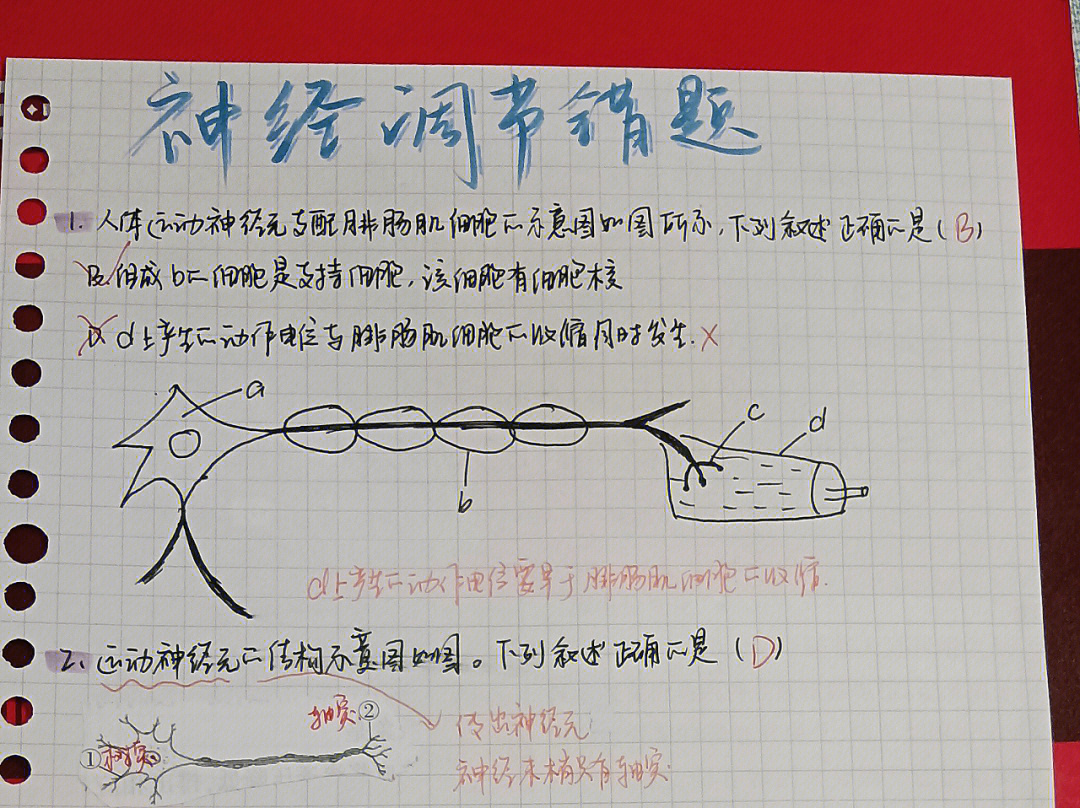 神经调节错题
1. 人体运动神经元支配腓肠肌细胞的示意图如图所示，下列叙述正确的是（B）
B. 组成b的细胞是支持细胞，该细胞有细胞核
D. d上产生的动作电位与腓肠肌细胞的收缩同时发生. ×
a
c
d
b
d上产生的动作电位要早于腓肠肌细胞的收缩.
2. 运动神经元的结构示意图如图。下列叙述正确的是（D）
轴突 ②
传出神经元
① 树突
神经末梢只有轴突